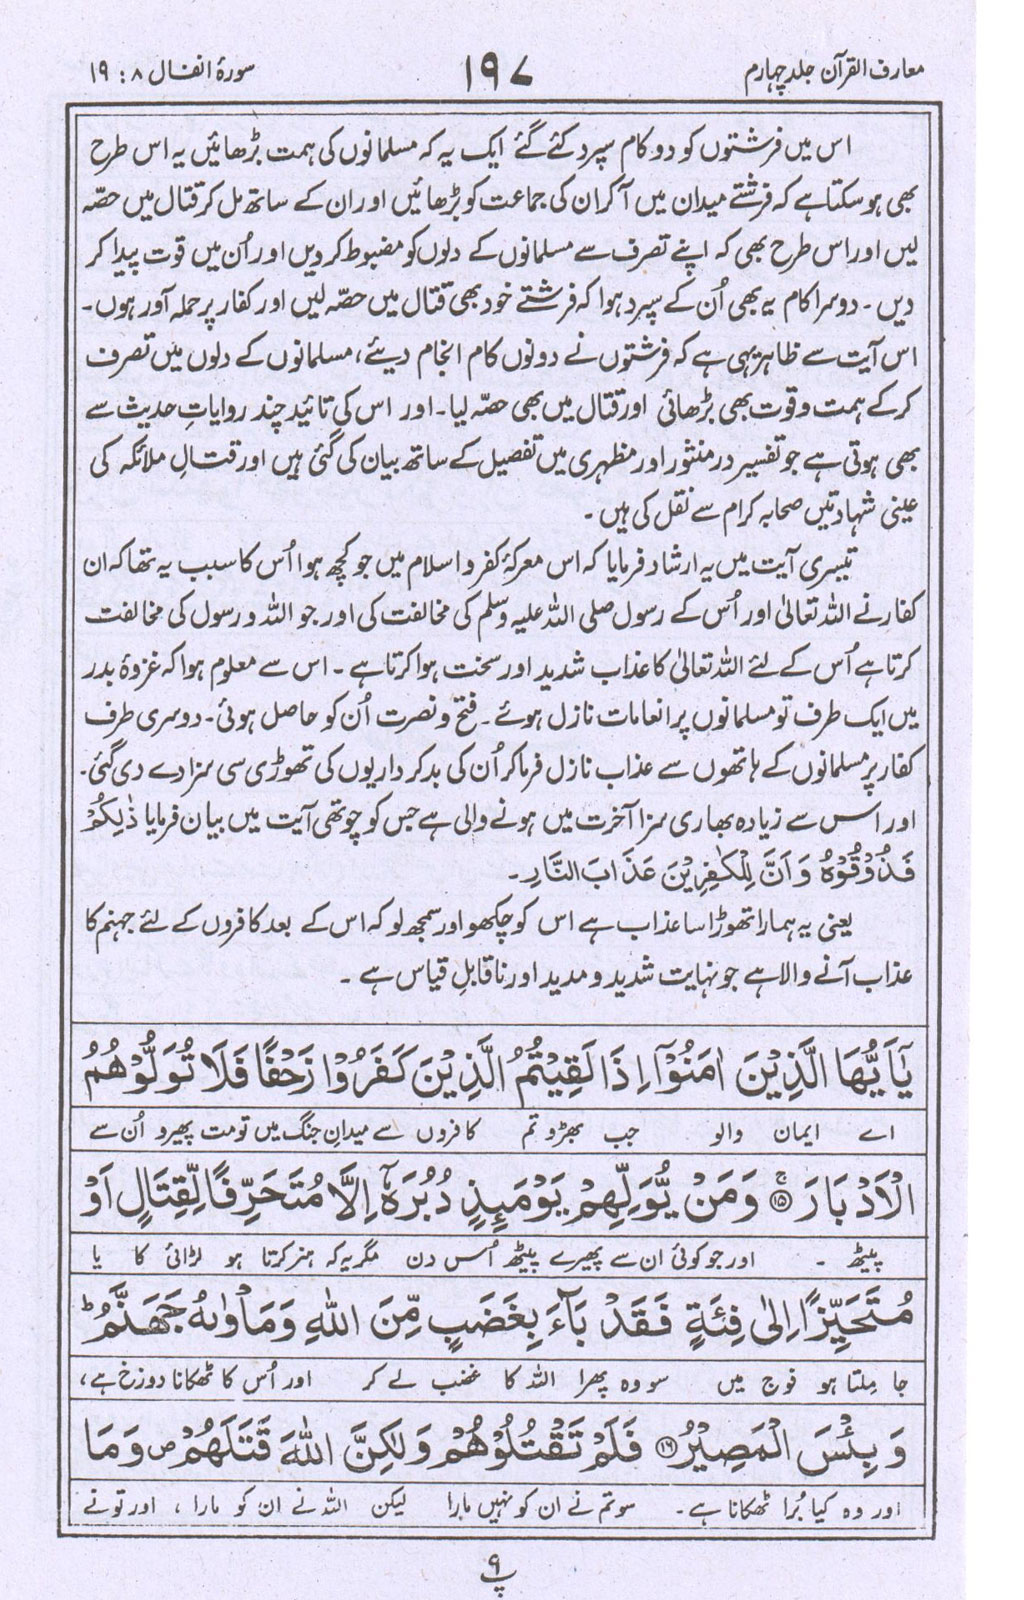 معارف القرآن جلد چہارم
۱۹۷
سورۂ انفال ۸ : ۱۹
اس میں فرشتوں کو دو کام سپرد کئے گئے ایک یہ کہ مسلمانوں کی ہمت بڑھائیں یہ اس طرح
بھی ہو سکتا ہے کہ فرشتے میدان میں آ کر ان کی جماعت کو بڑھائیں اور ان کے ساتھ مل کر قتال میں حصّہ
لیں اور اس طرح بھی کہ اپنے تصرف سے مسلمانوں کے دلوں کو مضبوط کردیں اور اُن میں قوت پیدا کر
دیں ۔ دوسرا کام یہ بھی اُن کے سپرد ہوا کہ فرشتے خود بھی قتال میں حصّہ لیں اور کفار پر حملہ آور ہوں ۔
اس آیت سے ظاہر یہی ہے کہ فرشتوں نے دونوں کام انجام دیئے، مسلمانوں کے دلوں میں تصرف
کر کے ہمت و قوت بھی بڑھائی اور قتال میں بھی حصّہ لیا ۔ اور اس کی تائید چند روایاتِ حدیث سے
بھی ہوتی ہے جو تفسیر در منثور اور مظہری میں تفصیل کے ساتھ بیان کی گئی ہیں اور قتالِ ملائکہ کی
عینی شہادتیں صحابہ کرام سے نقل کی ہیں ۔
تیسری آیت میں یہ ارشاد فرمایا کہ اس معرکۂ کفر و اسلام میں جو کچھ ہوا اُس کا سبب یہ تھا کہ ان
کفار نے اللہ تعالیٰ اور اُس کے رسول صلی اللہ علیہ وسلم کی مخالفت کی اور جو اللہ و رسول کی مخالفت
کرتا ہے اُس کے لئے اللہ تعالیٰ کا عذاب شدید اور سخت ہوا کرتا ہے ۔ اس سے معلوم ہوا کہ غزوۂ بدر
میں ایک طرف تو مسلمانوں پر انعامات نازل ہوئے ۔ فتح و نصرت اُن کو حاصل ہوئی ۔ دوسری طرف
کفار پر مسلمانوں کے ہاتھوں سے عذاب نازل فرما کر اُن کی بدکرداریوں کی تھوڑی سی سزا دے دی گئی ۔
اور اس سے زیادہ بھاری سزا آخرت میں ہونے والی ہے جس کو چوتھی آیت میں بیان فرمایا ذٰلِكُمْ
فَذُوْقُوْهُ وَاَنَّ لِلْكٰفِرِيْنَ عَذَابَ النَّارِ ۔
یعنی یہ ہمارا تھوڑا سا عذاب ہے اس کو چکھو اور سمجھ لو کہ اس کے بعد کافروں کے لئے جہنم کا
عذاب آنے والا ہے جو نہایت شدید و مدید اور ناقابلِ قیاس ہے ۔
يٰۤاَيُّهَا الَّذِيْنَ اٰمَنُوْۤا اِذَا لَقِيْتُمُ الَّذِيْنَ كَفَرُوْا زَحْفًا فَلَا تُوَلُّوْهُمُ
اے ایمان والو جب بھڑو تم کافروں سے میدانِ جنگ میں تو مت پھیرو اُن سے
الْاَدْبَارَ ۚ ﴿۱۵﴾ وَمَنْ يُّوَلِّهِمْ يَوْمَىِٕذٍ دُبُرَهٗۤ اِلَّا مُتَحَرِّفًا لِّقِتَالٍ اَوْ
پیٹھ ۔ اور جو کوئی ان سے پھیرے پیٹھ اُس دن مگر یہ کہ ہنر کرتا ہو لڑائی کا یا
مُتَحَيِّزًا اِلٰى فِئَةٍ فَقَدْ بَآءَ بِغَضَبٍ مِّنَ اللّٰهِ وَمَاْوٰىهُ جَهَنَّمُ ؕ
جا ملتا ہو فوج میں سو وہ پھرا اللہ کا غضب لے کر اور اُس کا ٹھکانا دوزخ ہے،
وَبِئْسَ الْمَصِيْرُ ﴿۱۶﴾ فَلَمْ تَقْتُلُوْهُمْ وَلٰكِنَّ اللّٰهَ قَتَلَهُمْ ۪ وَمَا
اور وہ کیا بُرا ٹھکانا ہے ۔ سو تم نے ان کو نہیں مارا لیکن اللہ نے ان کو مارا ، اور تو نے
پ ۹